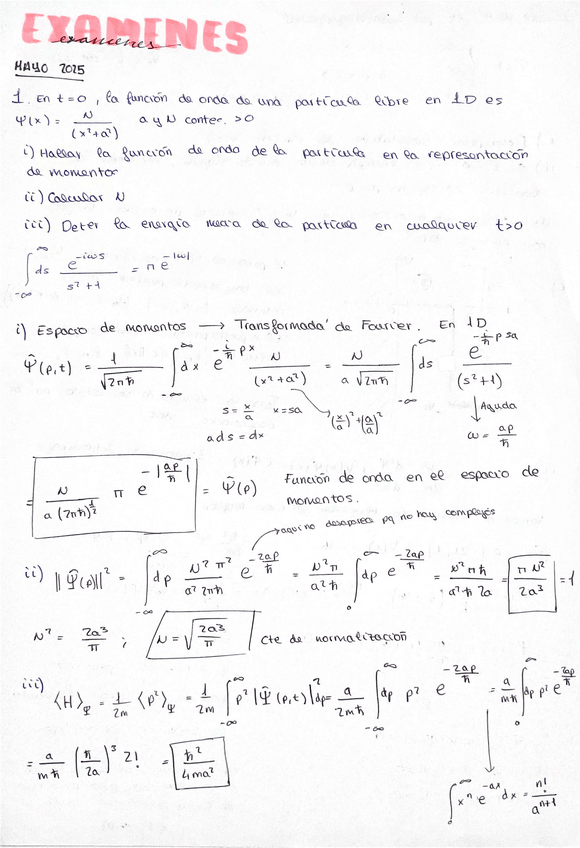 EXAMENES
examenes
MAYO 2025
1. En t=0, la función de onda de una partícula libre en 1D es
Ψ(x) = N/(x²+a²) a y N conter. >0
i) Hallar la función de onda de la partícula en la representación
de momentos
ii) Calcular N
iii) Deter la energía media de la partícula en cualquier t>0
∫_{-∞}^{∞} ds e^{-iωs}/(s²+1) = π e^{-|ω|}
i) Espacio de momentos → Transformada de Fourier. En 1D
Ψ̂(p,t) = 1/√(2πħ) ∫_{-∞}^{∞} dx e^{-(i/ħ)px} N/(x²+a²) = N/(a√(2πħ)) ∫_{-∞}^{∞} ds e^{-(i/ħ)psa}/(s²+1)
s = x/a x=sa (x/a)²+(a/a)² ↓ Ayuda
a ds = dx ω = ap/ħ
= N/(a(2πħ)^{1/2}) π e^{-|ap/ħ|} = Ψ̂(p) Función de onda en el espacio de
momentos.
→ aquí no desaparece pq no hay complejos
ii) ||Ψ̂(p)||² = ∫_{-∞}^{∞} dp N²π²/(a²2πħ) e^{-2ap/ħ} = N²π/(a²ħ) ∫_{0}^{∞} dp e^{-2ap/ħ} = N²πħ/(a²ħ2a) = πN²/(2a³) = 1
N² = 2a³/π ; N = √(2a³/π) Cte de normalización
iii) ⟨H⟩_Ψ = 1/2m ⟨p²⟩_Ψ = 1/2m ∫_{-∞}^{∞} p² |Ψ̂(p,t)|² dp = a/(2mħ) ∫_{-∞}^{∞} dp p² e^{-2ap/ħ} = a/(mħ) ∫_{0}^{∞} dp p² e^{-2ap/ħ}
= a/(mħ) (ħ/2a)³ 2! = ħ²/(4ma²)
∫_{0}^{∞} xⁿ e^{-ax} dx = n!/a^{n+1}